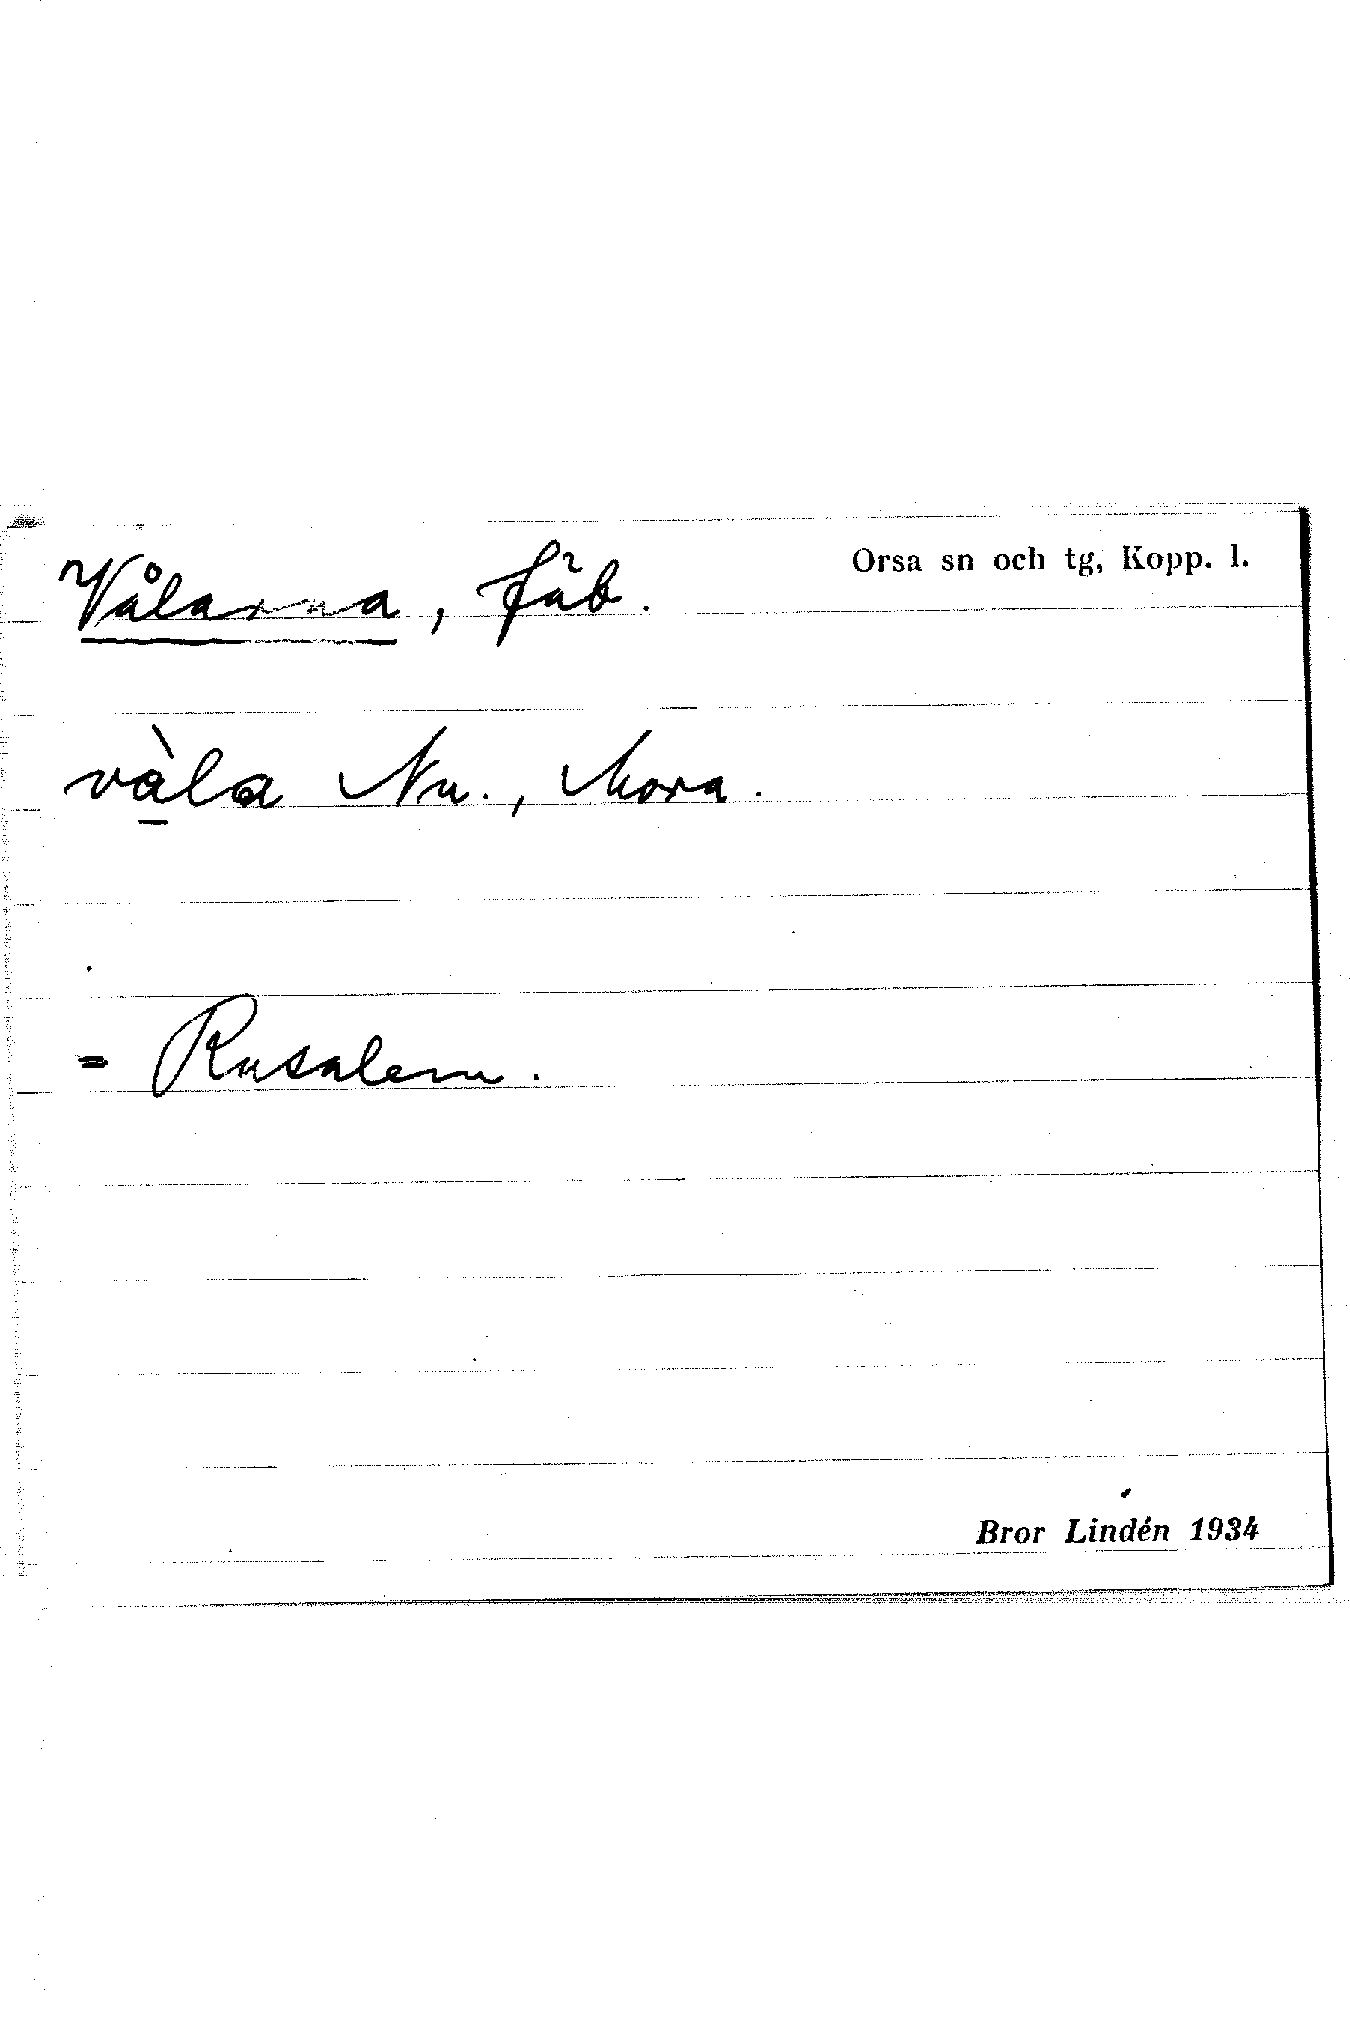 Orsa sn och tg, Kopp. l.
Vålarna, fäb.
vàla Nu., Mora.
= Rusalem.
Bror Lindén 1934